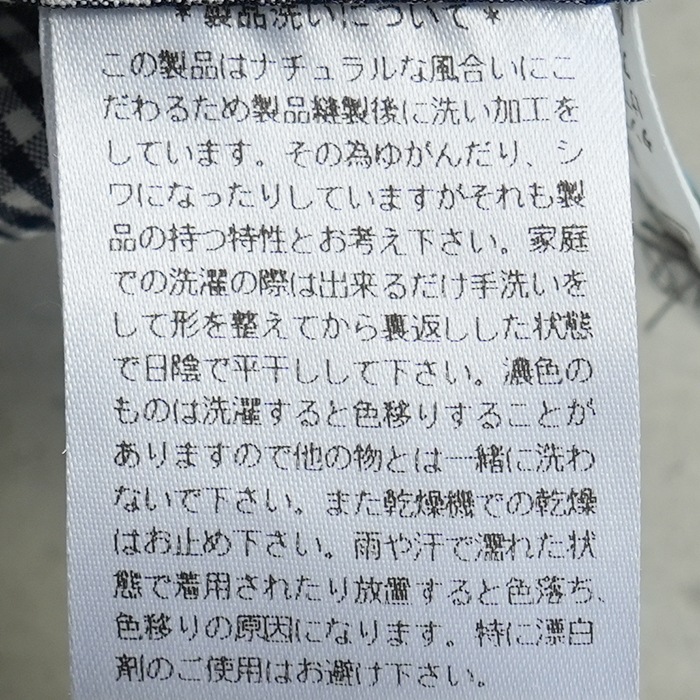 ＊製品洗いについて＊
この製品はナチュラルな風合いにこ
だわるため製品縫製後に洗い加工を
しています。その為ゆがんだり、シ
ワになったりしていますがそれも製
品の持つ特性とお考え下さい。家庭
での洗濯の際は出来るだけ手洗いを
して形を整えてから裏返しした状態
で日陰で平干しして下さい。濃色の
ものは洗濯すると色移りすることが
ありますので他の物とは一緒に洗わ
ないで下さい。また乾燥機での乾燥
はお止め下さい。雨や汗で濡れた状
態で着用されたり放置すると色落ち、
色移りの原因になります。特に漂白
剤のご使用はお避け下さい。